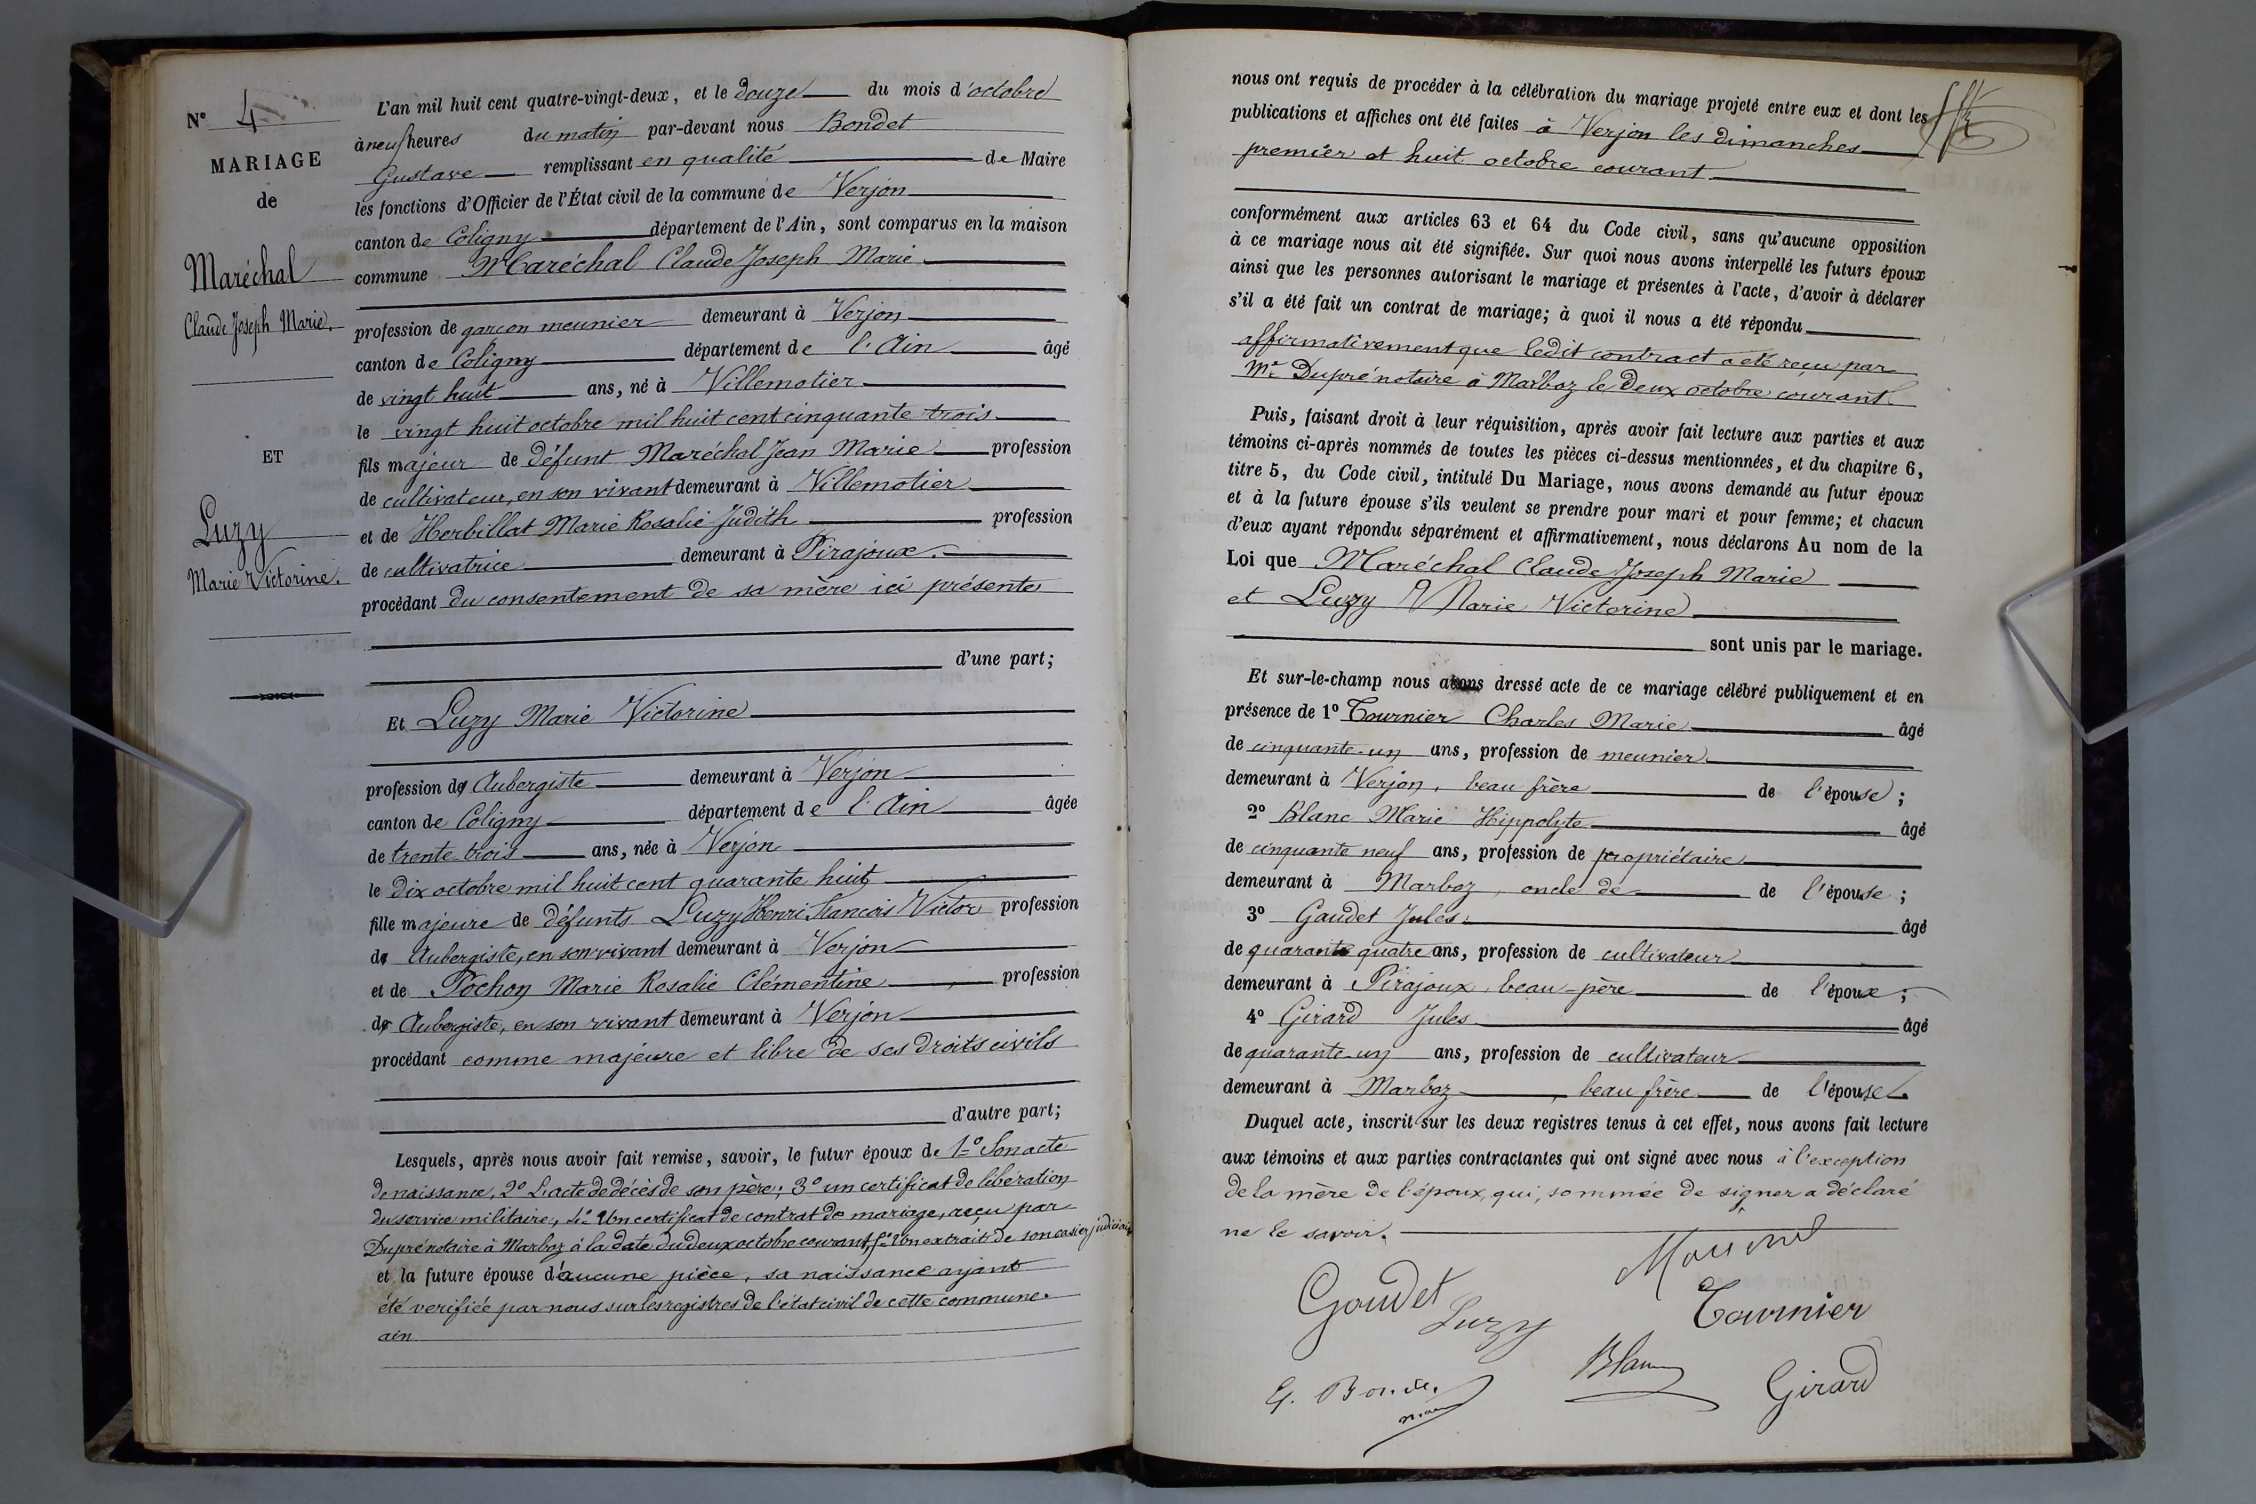 N° 4
MARIAGE
de
Maréchal
Claude Joseph Marie.
ET
Luzy
Marie Victorine.
L'an mil huit cent quatre-vingt-deux, et le douze du mois d'octobre
à neuf heures du matin par-devant nous Bondet
Gustave remplissant en qualité de Maire
les fonctions d'Officier de l'État civil de la commune de Verjon
canton de Coligny département de l'Ain, sont comparus en la maison
commune Maréchal Claude Joseph Marie
profession de garçon meunier demeurant à Verjon
canton de Coligny département de l'Ain âgé
de vingt huit ans, né à Villemotier
le vingt huit octobre mil huit cent cinquante trois
fils majeur de défunt Maréchal Jean Marie profession
de cultivateur, en son vivant demeurant à Villemotier
et de Herbillat Marie Rosalie Judith profession
de cultivatrice demeurant à Pirajoux.
procédant du consentement de sa mère ici présente
d'une part;
Et Luzy Marie Victorine
profession d' Aubergiste demeurant à Verjon
canton de Coligny département de l'Ain âgée
de trente trois ans, née à Verjon
le dix octobre mil huit cent quarante huit
fille majeure de défunts Luzy Henri François Victor profession
d' Aubergiste, en son vivant demeurant à Verjon
et de Pochon Marie Rosalie Clémentine profession
d' Aubergiste, en son vivant demeurant à Verjon
procédant comme majeure et libre de ses droits civils
d'autre part;
Lesquels, après nous avoir fait remise, savoir, le futur époux de 1° Son acte
de naissance, 2° L'acte de décès de son père; 3° un certificat de libération
du service militaire, 4° Un certificat de contrat de mariage, reçu par
Dupré notaire à Marboz à la date du deux octobre courant, 5° Un extrait de son casier judiciaire
et la future épouse d'aucune pièce, sa naissance ayant
été verifiée par nous sur les registres de l'état civil de cette commune.
ain
nous ont requis de procéder à la célébration du mariage projeté entre eux et dont les
publications et affiches ont été faites à Verjon les dimanches
premier et huit octobre courant
conformément aux articles 63 et 64 du Code civil, sans qu'aucune opposition
à ce mariage nous ait été signifiée. Sur quoi nous avons interpellé les futurs époux
ainsi que les personnes autorisant le mariage et présentes à l'acte, d'avoir à déclarer
s'il a été fait un contrat de mariage; à quoi il nous a été répondu
affirmativement que ledit contract a été reçu par
Me Dupré notaire à Marboz le deux octobre courant.
Puis, faisant droit à leur réquisition, après avoir fait lecture aux parties et aux
témoins ci-après nommés de toutes les pièces ci-dessus mentionnées, et du chapitre 6,
titre 5, du Code civil, intitulé Du Mariage, nous avons demandé au futur époux
et à la future épouse s'ils veulent se prendre pour mari et pour femme; et chacun
d'eux ayant répondu séparément et affirmativement, nous déclarons Au nom de la
Loi que Maréchal Claude Joseph Marie
et Luzy Marie Victorine
sont unis par le mariage.
Et sur-le-champ nous avons dressé acte de ce mariage célébré publiquement et en
présence de 1° Tournier Charles Marie âgé
de cinquante-un ans, profession de meunier
demeurant à Verjon, beau frère de l'épouse;
2° Blanc Marie Hippolyte âgé
de cinquante neuf ans, profession de propriétaire
demeurant à Marboz, oncle de de l'épouse;
3° Gaudet Jules âgé
de quarante quatre ans, profession de cultivateur
demeurant à Pirajoux, beau-père de l'époux;
4° Girard Jules âgé
de quarante-un ans, profession de cultivateur
demeurant à Marboz, beau frère de l'épouse.
Duquel acte, inscrit sur les deux registres tenus à cet effet, nous avons fait lecture
aux témoins et aux parties contractantes qui ont signé avec nous à l'exception
de la mère de l'époux, qui, sommée de signer a déclaré
ne le savoir.
Gaudet
Luzy
Tournier
Blanc
Girard
G. Bondet